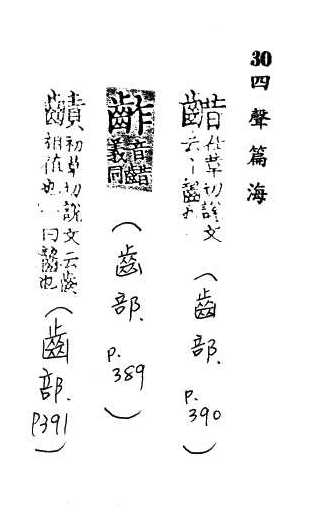 30 四聲篇海
齰 仕革切說文云 齧也(齒部.P.390)
齚 音義同齰(齒部.P.389)
齒責 初革切說文云齒相值也一曰齧也(齒部.P391)